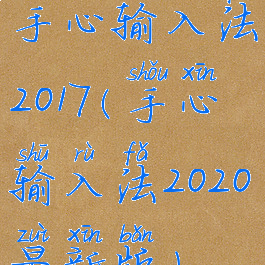 手心输入法
shǒu xīn
2017(手心
shū rù fǎ
输入法2020
zuì xīn bǎn
最新版)